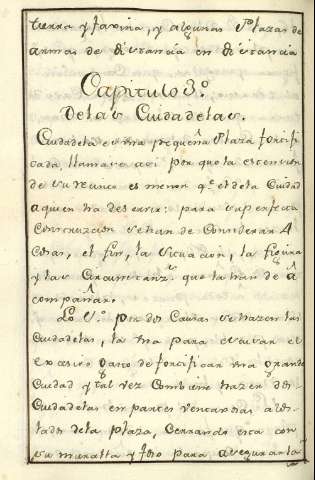 tierra y faxina, y algunas Plazas de
armas de distancia en distancia
Capitulo 3º
De las Ciudadelas.
Ciudadela es una pequeña Plaza fortifi
cada, llamase asi por que la estencion
de su resinto es menor qº. el de la Ciudad
a quien ha de servir: para su perfecta
Construzion se han de Considerar 4
Cosas, el fin, la situacion, la figura
y las Circunstanzs. que la han de a
compañar.
Lo 1º. por dos Causas se hazen las
Ciudadelas, la una para escusar el
excesivo gasto de fortificar una grande
Ciudad y tal vez Combiene hazer dos
Ciudadelas en partes ventaxosas a los
lados de la plaza, Cerrando esta con
su muralla y foso para asegurarla